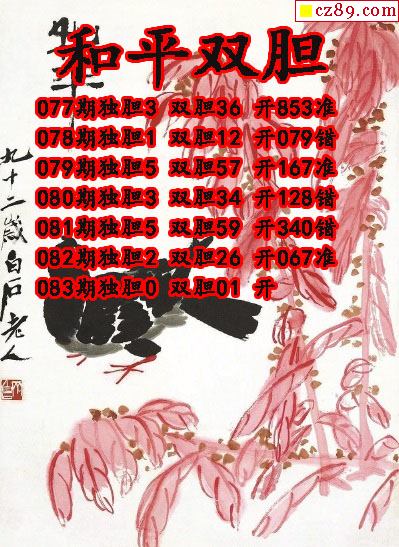 cz89.com
和平双胆
077期独胆3 双胆36 开853准
078期独胆1 双胆12 开079错
079期独胆5 双胆57 开167准
080期独胆3 双胆34 开128错
081期独胆5 双胆59 开340错
082期独胆2 双胆26 开067准
083期独胆0 双胆01 开
九十二岁白石老人